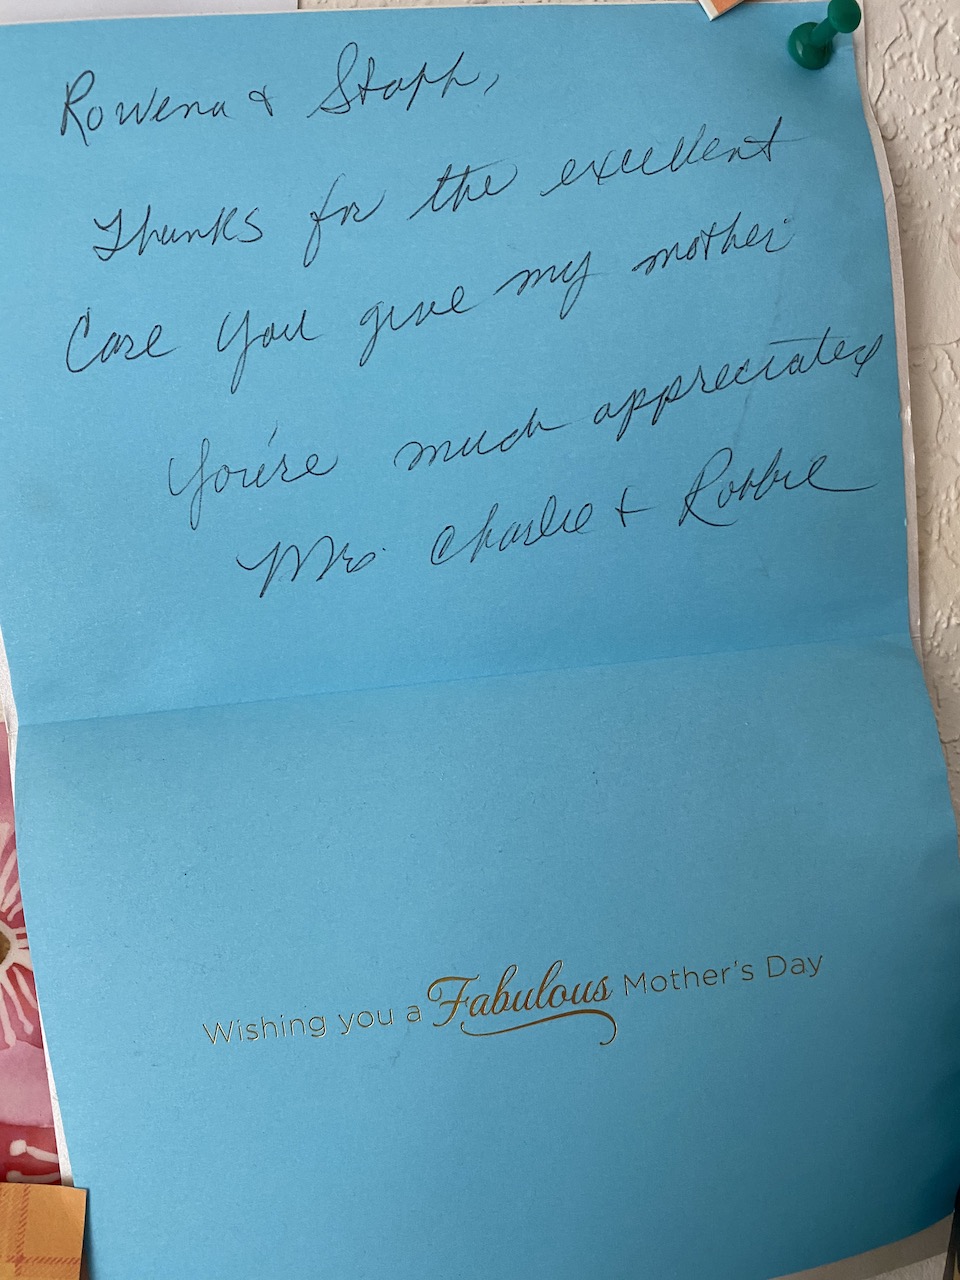 Rowena & Staff,
Thanks for the excellent
Care you give my mother
You're much appreciated
Mrs. Charlie & Robbie
Wishing you a Fabulous Mother's Day